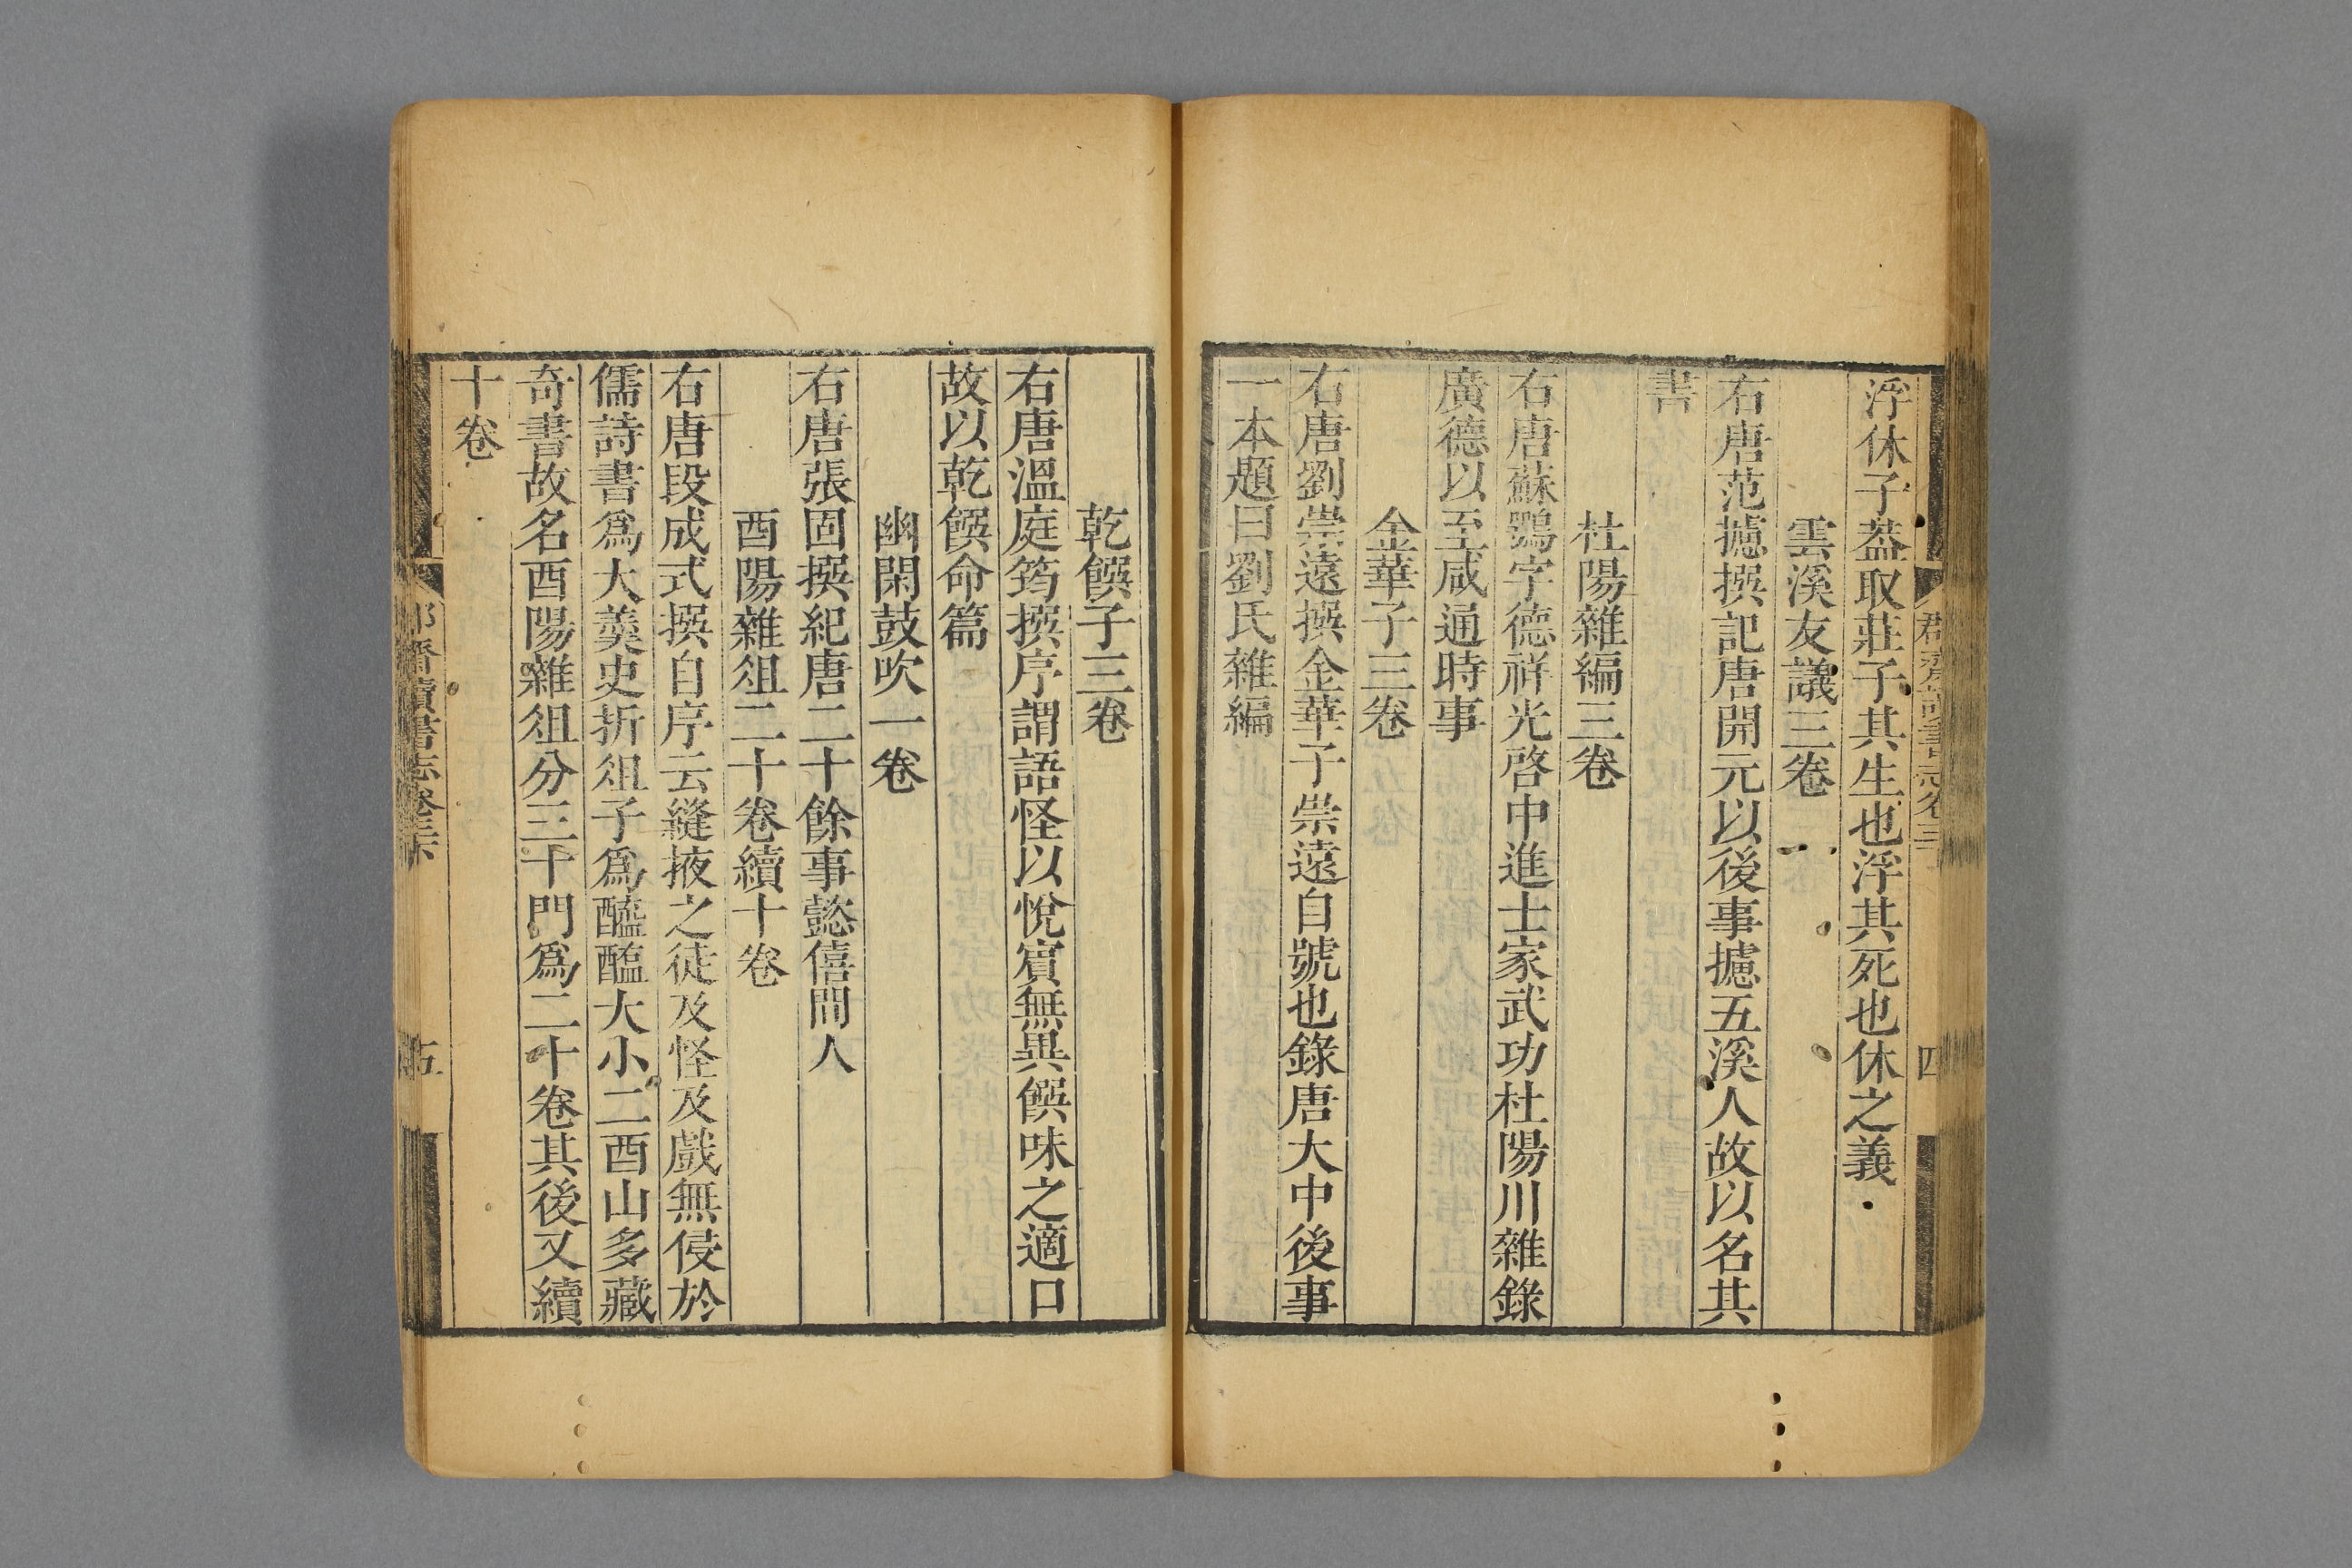 浮休子葢取莊子其生也浮其死也休之義
雲溪友議三卷
右唐范攄撰記唐開元以後事攄五溪人故以名其
書
杜陽雜編三卷
右唐蘇鶚字德祥光啓中進士家武功杜陽川雜錄
廣德以至咸通時事
金華子三卷
右唐劉崇遠撰金華子崇遠自號也錄唐大中後事
一本題曰劉氏雜編
乾𦠆子三卷
右唐溫庭筠撰序謂語怪以悅賓無異饌味之適口
故以乾饌命篇
幽閑鼓吹一卷
右唐張固撰紀唐二十餘事懿僖間人
酉陽雜俎二十卷續十卷
右唐段成式撰自序云縫掖之徒及怪及戲無侵於
儒詩書爲大羹史折俎子爲醯醢大小二酉山多藏
奇書故名酉陽雜俎分三十門爲二十卷其後又續
十卷
五